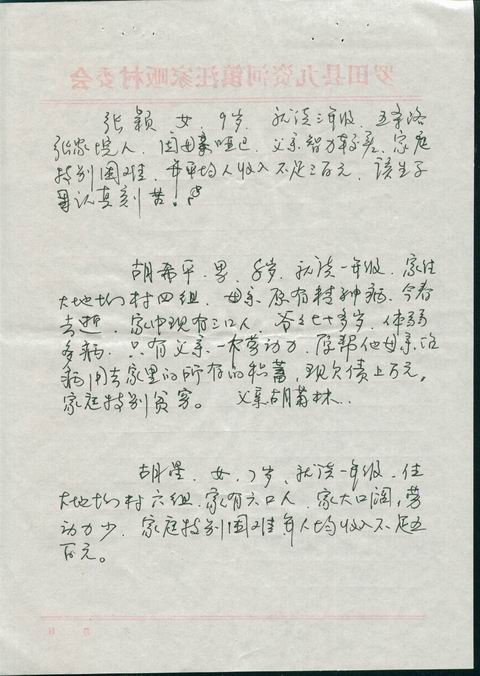 罗田县九资河镇汪家畈村委会
张颖 女 9岁. 就读三年级. 王字路
张家塆人. 因母亲哑巴. 父亲智力较差. 家庭
特别困难. 年平均人收入不足三百元. 该生学
习认真刻苦。
胡希平. 男. 8岁. 就读一年级. 家住
大地坳村四组. 母亲原有精神病. 今春
去逝. 家中现有三口人. 爷爷七十多岁. 体弱
多病. 只有父亲一个劳动力. 原帮他母亲治
病用去家里的所有的积蓄. 现欠债上万元,
家庭特别贫寒。 父亲胡菊林..
胡星. 女. 7岁. 就读一年级. 住
大地坳村六组. 家有六口人. 家大口阔, 劳
动力少. 家庭特别困难年人均收入不足五
百元。
月 日